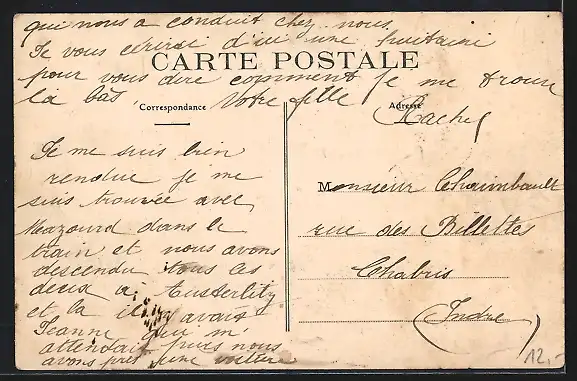 qui nous a conduit chez nous
Je vous écrirai d'ici une huitaine
CARTE POSTALE
pour vous dire comment je me trouve
là bas. Votre fille
Rachel
Correspondance
Adresse
Je me suis bien
rendue je me
suis trouvée avec
dans le
train et nous avons
descendu tous les
deux à Austerlitz
et la avais
Jeanne qui m'
attendait puis nous
avons pris une voiture
Monsieur Chaimbault
rue des Billettes
Chabris
(Indre)
12,-